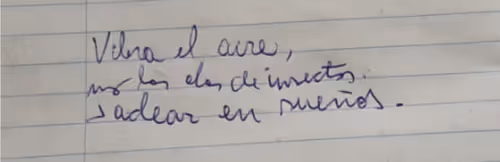 Vibra el aire,
las alas de insectos.
en sueños.